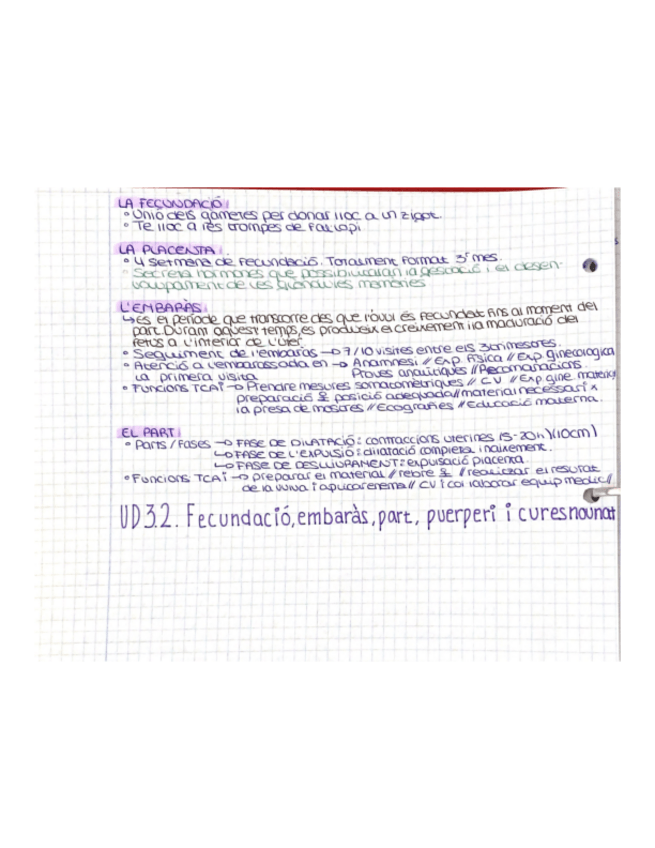 LA FECUNDACIÓ:
° Unió dels gàmetes per donar lloc a un zigot.
° Té lloc a les trompes de Fal·lopi
LA PLACENTA:
° 4 setmana de fecundació. Totalment format 3r mes.
° Secreta hormones que possibilitaran la gestació i el desen-
volupament de les glàndules mamàries
L'EMBARÀS:
↳ és el període que transcorre des que l'òvul és fecundat fins al moment del
part. Durant aquest temps, es produeix el creixement i la maduració del
fetus a l'interior de l'úter.
° Seguiment de l'embaràs → 7/10 visites entre els 3 trimestres.
° Atenció a l'embarassada en → Anamnesi // Exp física // Exp. ginecològica
la primera visita Proves analítiques // Recomanacions.
° Funcions TCAI → Prendre mesures somatomètriques // CV // Exp. gine material
preparació & posició adequada // material necessari x
la presa de mostres // Ecografies // Educació materna.
EL PART:
° Parts / Fases → FASE DE DILATACIÓ: contraccions uterines (5-20h)(10cm)
↳ FASE DE L'EXPULSIÓ: dilatació completa i naixement.
↳ FASE DE DESLLIURAMENT: expulsació placenta.
° Funcions TCAI → preparar el material // rebre & // realitzar el
de la vulva i aplicar enema // CV i col·laborar equip mèdic //
UD 3.2. Fecundació, embaràs, part, puerperi i cures nounat